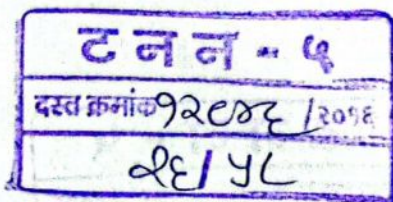 ट न न - ५
दस्त क्रमांक १२९४६ /२०१६
२६/५८